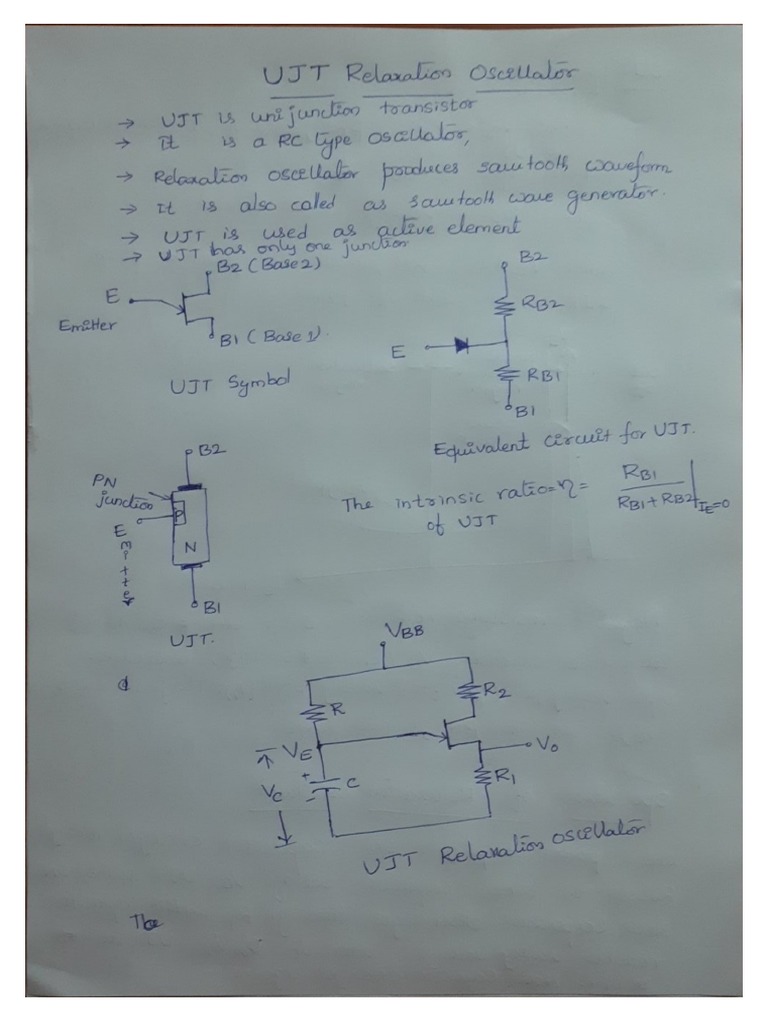 UJT Relaxation Oscillator
→ UJT is unijunction transistor
→ It is a RC type oscillator,
→ Relaxation oscillator produces sawtooth waveform
→ It is also called as sawtooth wave generator.
→ UJT is used as active element
→ UJT has only one junction
B2 (Base 2)
E
Emitter
B1 (Base 1)
UJT Symbol
B2
RB2
E
RB1
B1
Equivalent circuit for UJT.
B2
PN
junction
P
E
Emitter
N
B1
UJT.
The intrinsic ratio=η= RB1
of UJT RB1+RB2 |IE=0
VBB
R
R2
VE
V0
+
VC
-
C
R1
UJT Relaxation Oscillator
d
The